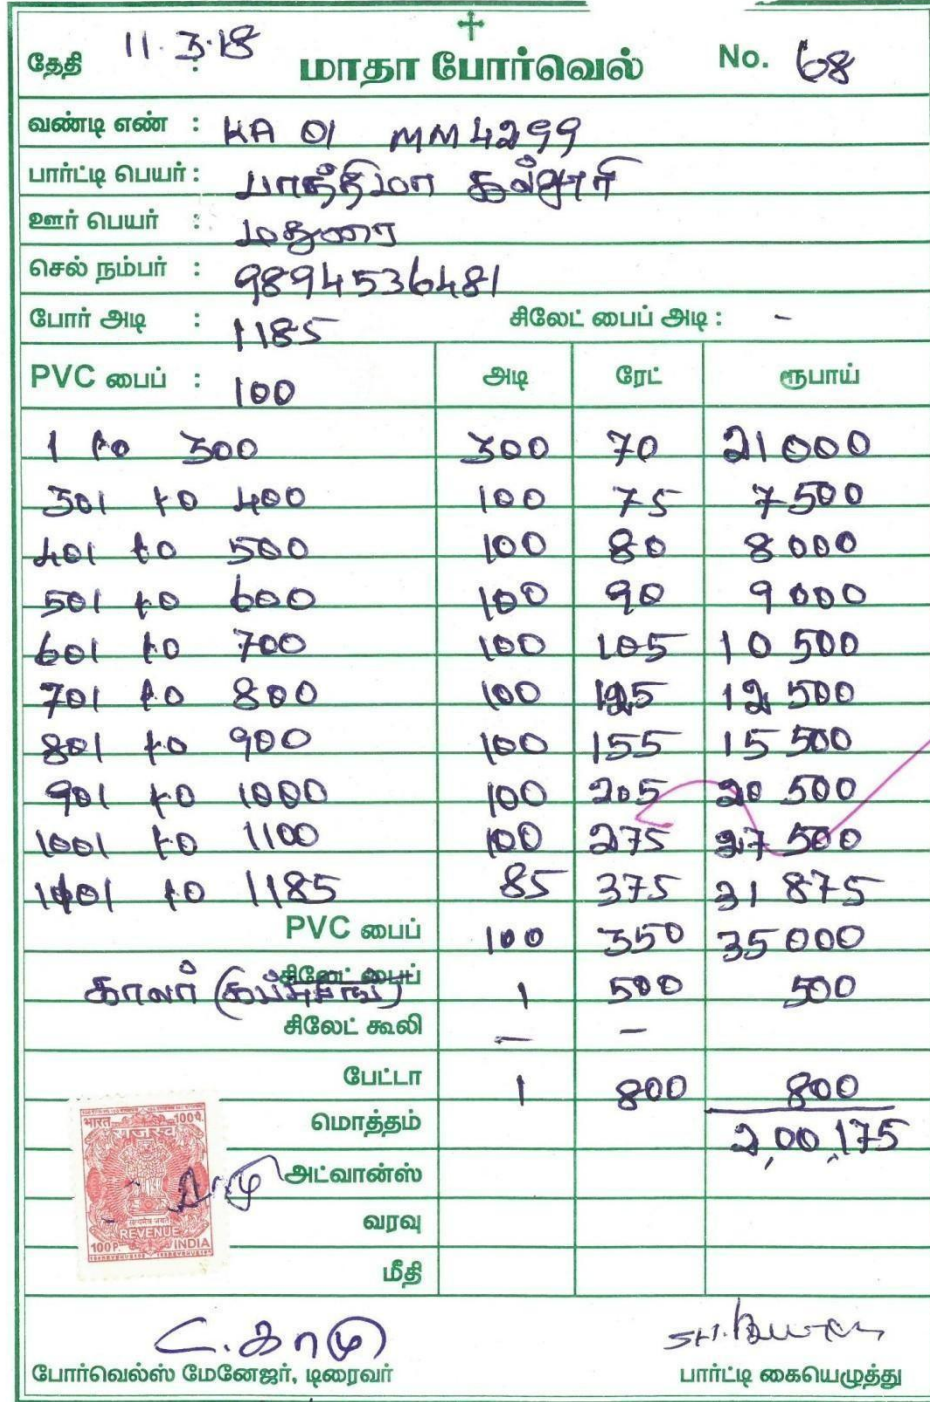 தேதி : 11.3.18 மாதா போர்வெல் No. 68
வண்டி எண் : KA 01 MM4299
பார்ட்டி பெயர் : பாத்திமா கல்லூரி
ஊர் பெயர் : மதுரை
செல் நம்பர் : 9894536481
போர் அடி : 1185 சிலேட் பைப் அடி : -
PVC பைப் : 100 அடி ரேட் ரூபாய்
1 to 300 300 70 21000
301 to 400 100 75 7500
401 to 500 100 80 8000
501 to 600 100 90 9000
601 to 700 100 105 10500
701 to 800 100 125 12500
801 to 900 100 155 15500
901 to 1000 100 205 20500
1001 to 1100 100 275 27500
1101 to 1185 85 375 31875
PVC பைப் 100 350 35000
காலர் சிலேட் பைப் 1 500 500
சிலேட் கூலி — —
பேட்டா 1 800 800
மொத்தம் 2,00,175
அட்வான்ஸ்
வரவு
மீதி
भारत 100P.
राजस्व
REVENUE
100P. INDIA
போர்வெல்ஸ் மேனேஜர், டிரைவர் பார்ட்டி கையெழுத்து